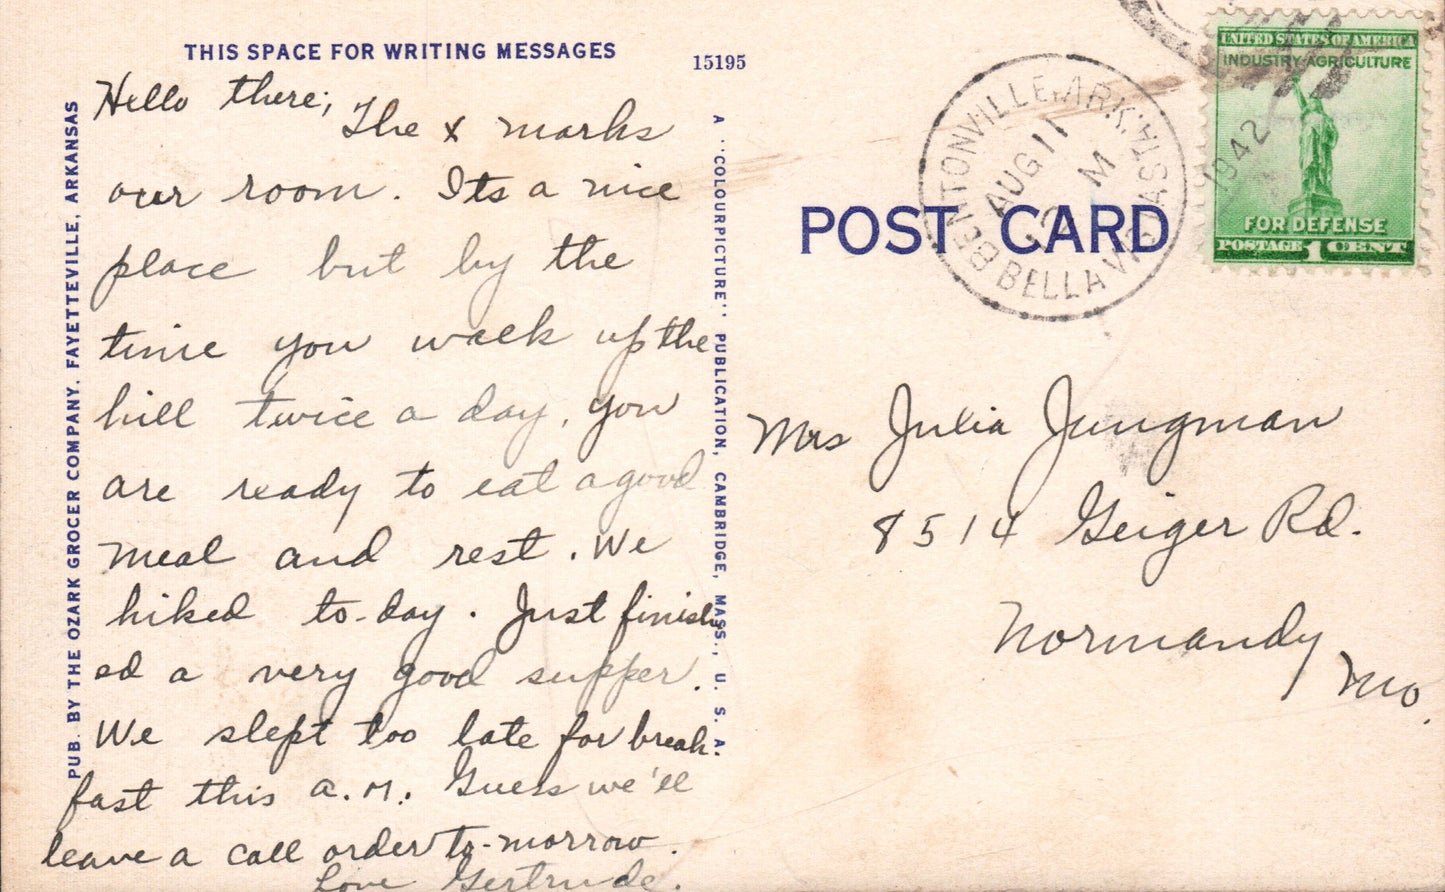 THIS SPACE FOR WRITING MESSAGES
15195
Hello there;
The x marks
our room. Its a nice
place but by the
time you walk up the
hill twice a day, you
are ready to eat a good
meal and rest. We
hiked to-day. Just finish
ed a very good supper.
We slept too late for break-
fast this a.m. Guess we'll
leave a call order to-morrow.
Love Gertrude.
PUB. BY THE OZARK GROCER COMPANY, FAYETTEVILLE, ARKANSAS
A "COLOURPICTURE" PUBLICATION, CAMBRIDGE, MASS., U. S. A.
POST CARD
BENTONVILLE, ARK.
AUG 11
M
1942
BELLA VISTA
UNITED STATES OF AMERICA
INDUSTRY-AGRICULTURE
FOR DEFENSE
POSTAGE 1 CENT
Mrs Julia Jungman
8514 Geiger Rd.
Normandy
Mo.